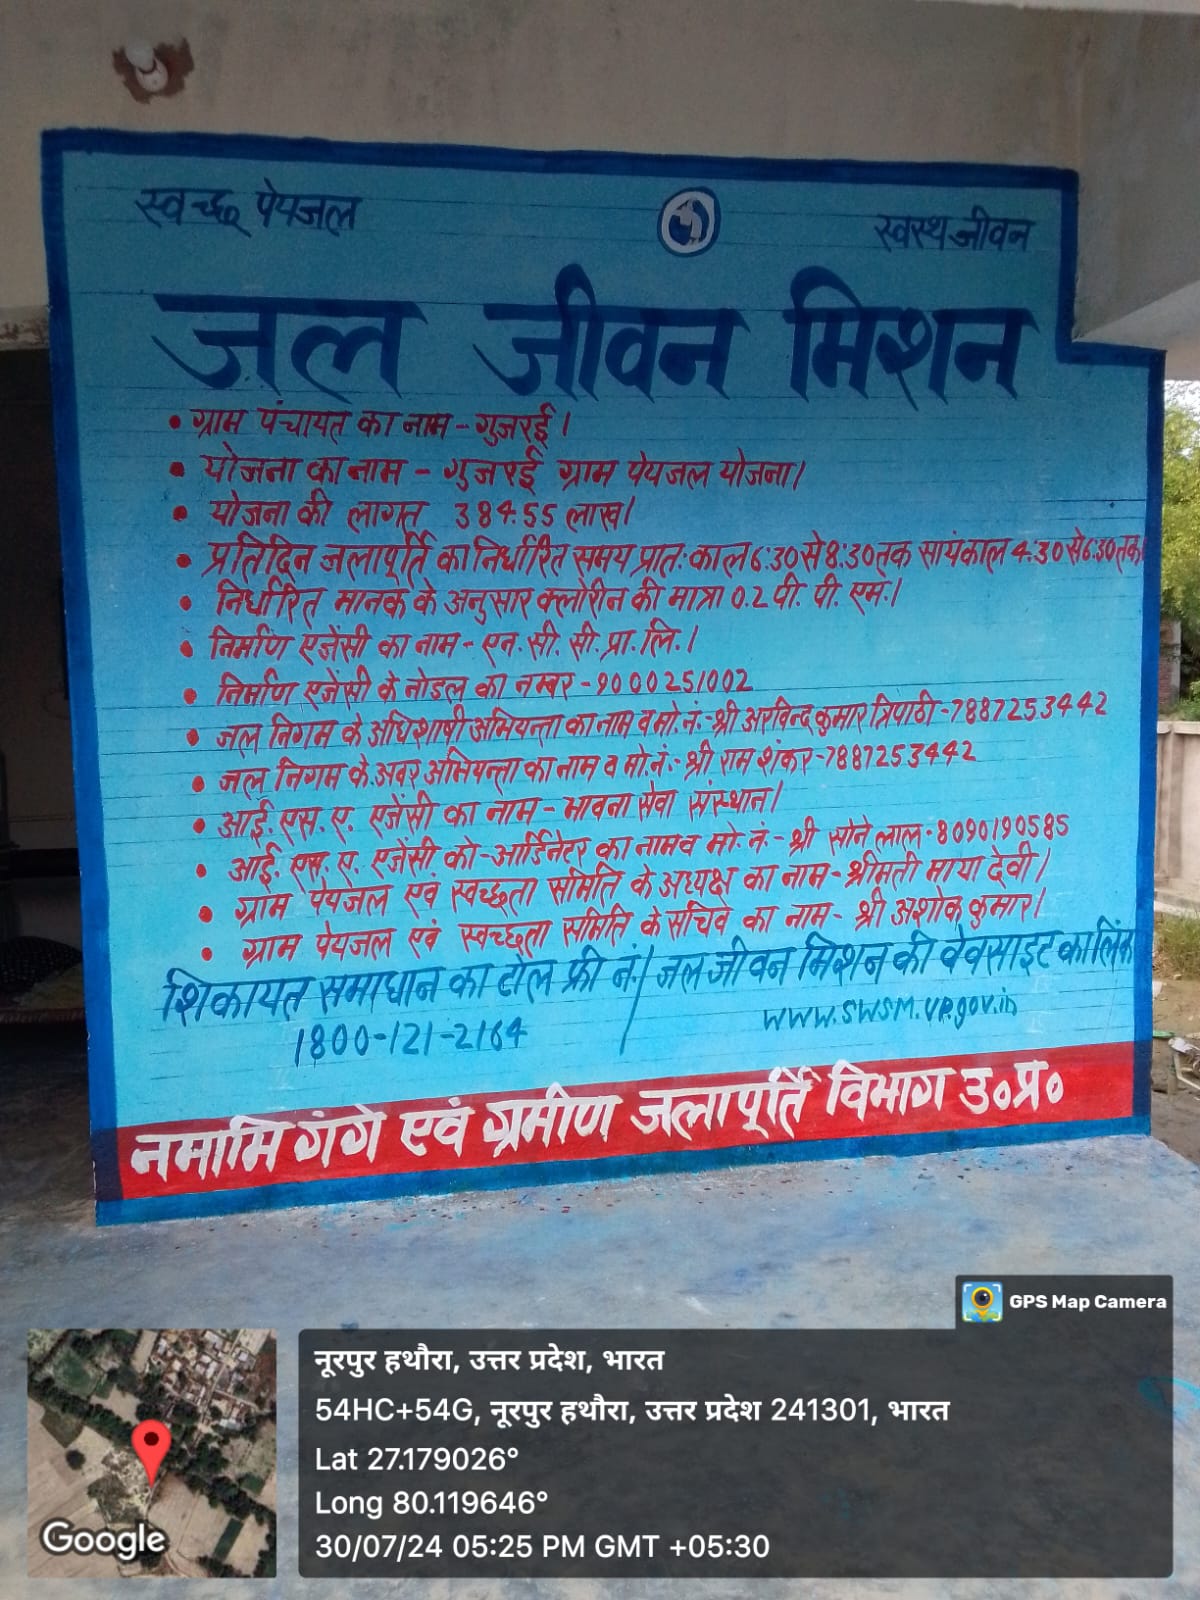 स्वच्छ पेयजल
स्वस्थ जीवन
जल जीवन मिशन
• ग्राम पंचायत का नाम - गुजरई।
• योजना का नाम - गुजरई ग्राम पेयजल योजना।
• योजना की लागत 384.55 लाख।
• प्रतिदिन जलापूर्ति का निर्धारित समय प्रातः काल 6:30 से 8:30 तक सायंकाल 4:30 से 6:30 तक
• निर्धारित मानक के अनुसार क्लोरीन की मात्रा 0.2 पी. पी. एम.।
• निर्माण एजेंसी का नाम - एन. सी. सी. प्रा. लि.।
• निर्माण एजेंसी के नोडल का नम्बर - 9000251002
• जल निगम के अधिशाषी अभियन्ता का नाम व मो. नं. - श्री अरविन्द कुमार त्रिपाठी - 7887253442
• जल निगम के अवर अभियन्ता का नाम व मो. नं. - श्री राम शंकर - 7887253442
• आई. एस. ए. एजेंसी का नाम - भावना सेवा संस्थान।
• आई. एस. ए. एजेंसी को-आर्डिनेटर का नाम व मो. नं. - श्री सोने लाल - 8090190585
• ग्राम पेयजल एवं स्वच्छता समिति के अध्यक्ष का नाम - श्रीमती माया देवी।
• ग्राम पेयजल एवं स्वच्छता समिति के सचिव का नाम - श्री अशोक कुमार।
शिकायत समाधान का टोल फ्री नं. / जल जीवन मिशन की वेवसाइट का लिंक
1800-121-2164 / www.swsm.up.gov.in
नमामि गंगे एवं ग्रमीण जलापूर्ति विभाग उ० प्र०
GPS Map Camera
नूरपुर हथौरा, उत्तर प्रदेश, भारत
54HC+54G, नूरपुर हथौरा, उत्तर प्रदेश 241301, भारत
Lat 27.179026°
Long 80.119646°
30/07/24 05:25 PM GMT +05:30
Google